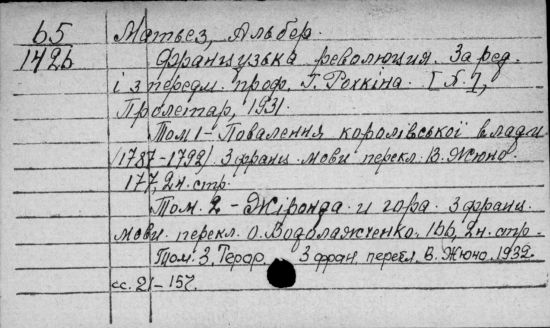 65
1426
Матьез, Альбер.
Французька революция. За ред.
і з передм. проф. Г. Рохкіна. [Х.],
Пролетар, 1931.
Том 1 - Повалення королівської влади
(1787-1792). З франц. мови перекл. В. Жюно.
177, 2 н. стр.
Том. 2 - Жіронда и гора. З франц.
мови. перекл. О. Водолажченко. 166, 2 н. стр.
Том. 3. Терор. З фран. перекл. В. Жюно. 1932.
сс. 21-157.